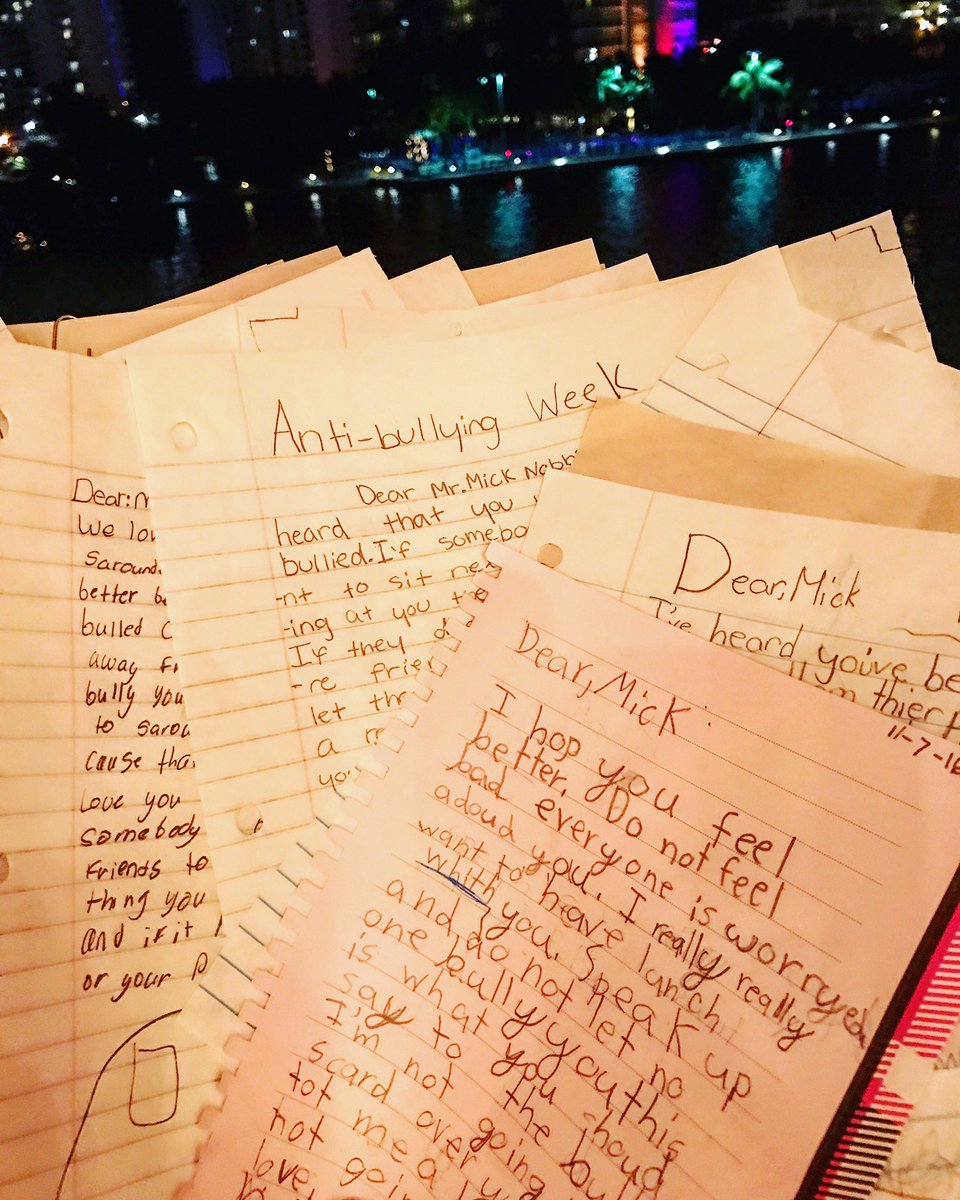 Dear:
We lo
Saround.
better b
bulled
away
bully you
to sarou
cause tha
Love you
somebody
Friends to
thing you
and if it
or your
Anti-bullying Week
Dear Mr. Mick
heard that you
bullied. If somebo
-nt to sit ne
-ing at you
If they
-re frie
let th
a
you
Dear, Mick
I've heard youve be
from thier
11-7-16
Dear, Mick:
I hop you feel
better. Do not feel
bad everyone is worryed
adoud you. I really really
want to heave lunch
whith you. Speak up
and do not let no
one bully you this
is what you shoud
say to the bull
I'm not going
scard over
tot me a
not going
love